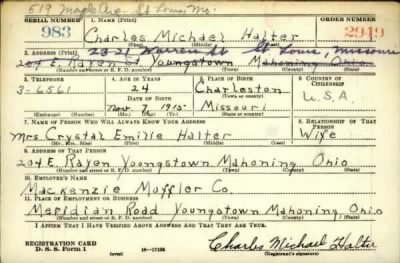 519 Maple Ave. St Louis, Mo.
SERIAL NUMBER 1. NAME (Print) ORDER NUMBER
983 Charles Michael Halter 2949
(First) (Middle) (Last)
2. ADDRESS (Print) 2321 Warren St St Louis, Missouri
204 E. Rayen Youngstown Mahoning Ohio
(Number and street or R. F. D. number) (Town) (County) (State)
3. TELEPHONE 4. AGE IN YEARS 5. PLACE OF BIRTH 6. COUNTRY OF CITIZENSHIP
3-6561 24 Charleston
(Town or county)
DATE OF BIRTH U.S.A.
Nov. 7, 1915 Missouri
(Exchange) (Number) (Mo.) (Day) (Yr.) (State or country)
7. NAME OF PERSON WHO WILL ALWAYS KNOW YOUR ADDRESS 8. RELATIONSHIP OF THAT PERSON
Mrs Crystal Emilie Halter Wife
(Mr., Mrs., Miss) (First) (Middle) (Last)
9. ADDRESS OF THAT PERSON
204 E. Rayen Youngstown Mahoning Ohio
(Number and street or R. F. D. number) (Town) (County) (State)
10. EMPLOYER'S NAME
Mackenzie Muffler Co.
11. PLACE OF EMPLOYMENT OR BUSINESS
Meridian Road Youngstown Mahoning Ohio
(Number and street or R. F. D. number) (Town) (County) (State)
I AFFIRM THAT I HAVE VERIFIED ABOVE ANSWERS AND THAT THEY ARE TRUE.
REGISTRATION CARD
D. S. S. Form 1 16-17105 Charles Michael Halter
(over) (Registrant's signature)